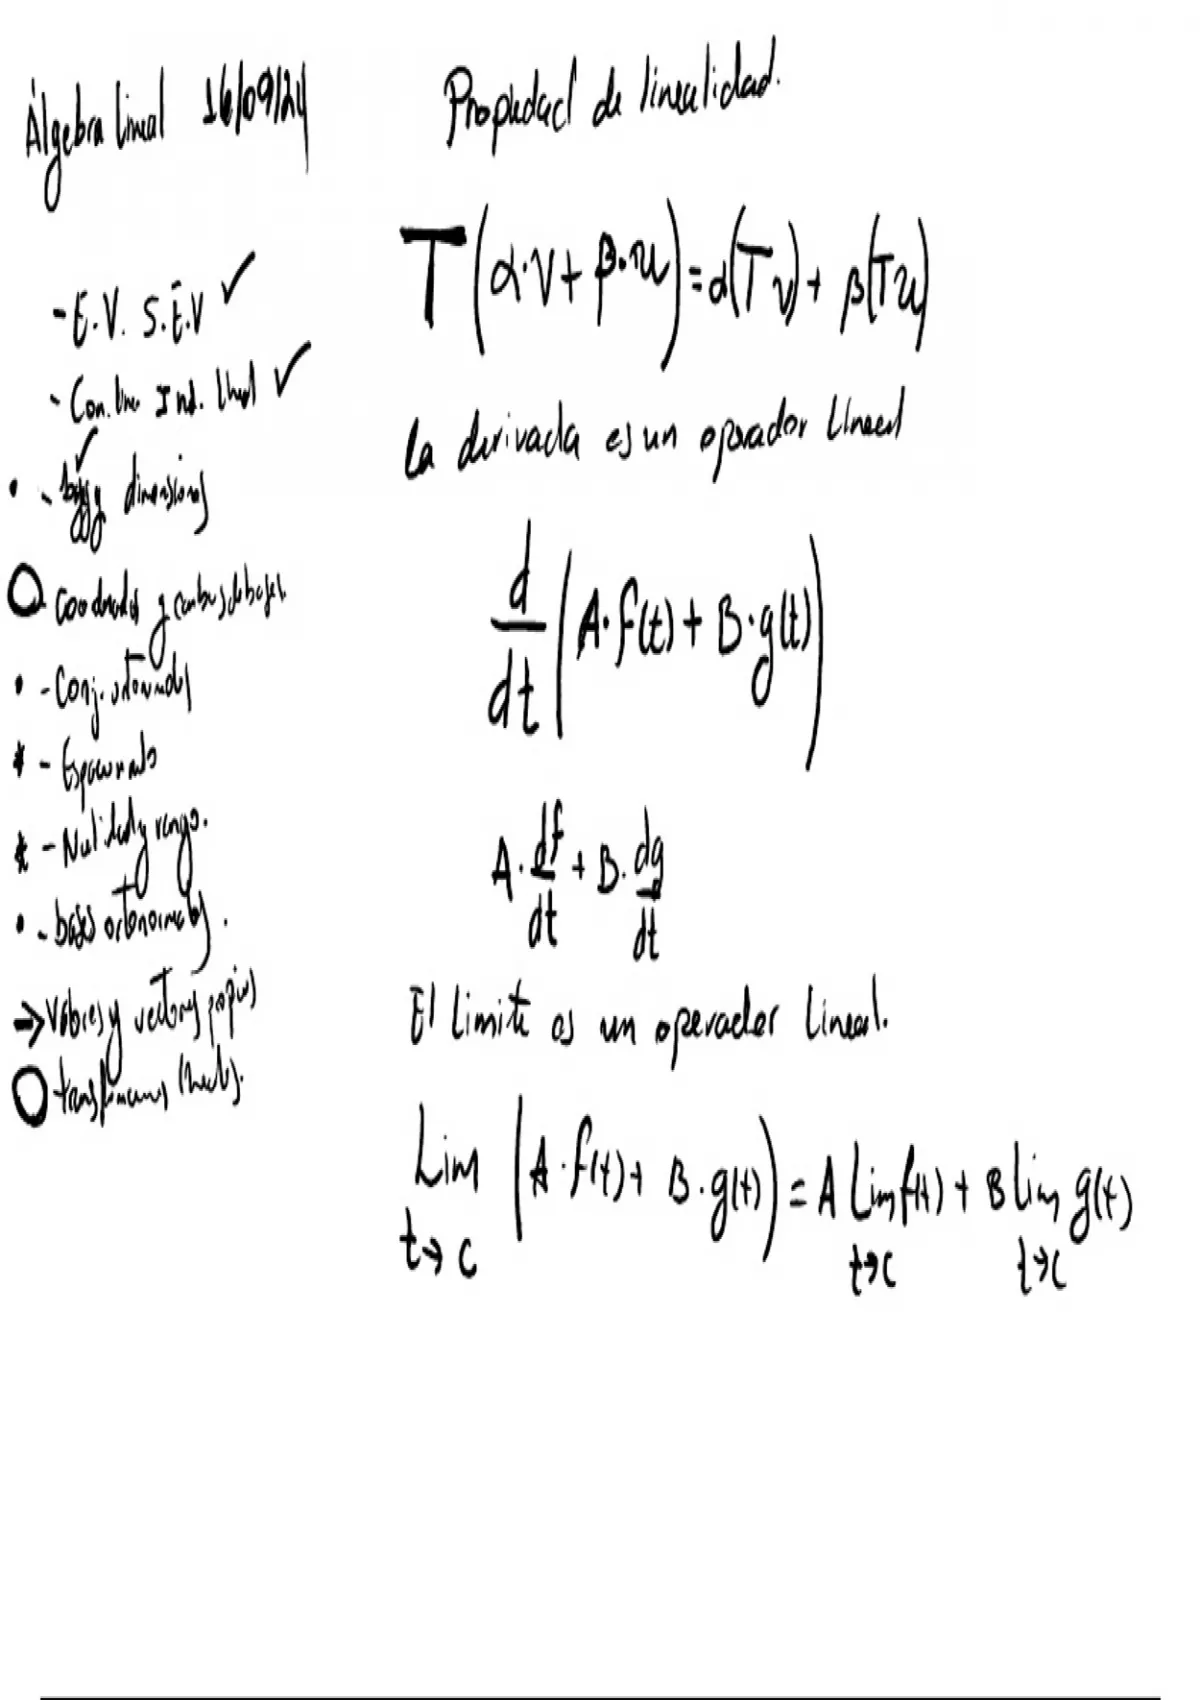 Álgebra lineal 16/09/24
- E.V. S.E.V ✓
- Com. line Ind. lineal ✓
• - bases y dimensiones ✓
O - Coordenadas y cambios de bases.
• - Conj. ortonormales
* - Espacio nulo
* - Nulidad y rango.
• - bases ortonormales.
→ Valores y vectores propios
O transformaciones lineales.
Propiedad de linealidad.
T(α·v + β·u) = α(Tv) + β(Tu)
La derivada es un operador Lineal
d/dt (A·f(t) + B·g(t))
A·df/dt + B·dg/dt
El Limite es un operador Lineal.
Lim (A·f(t) + B·g(t)) = A Lim f(t) + B lim g(t)
t→c t→c t→c